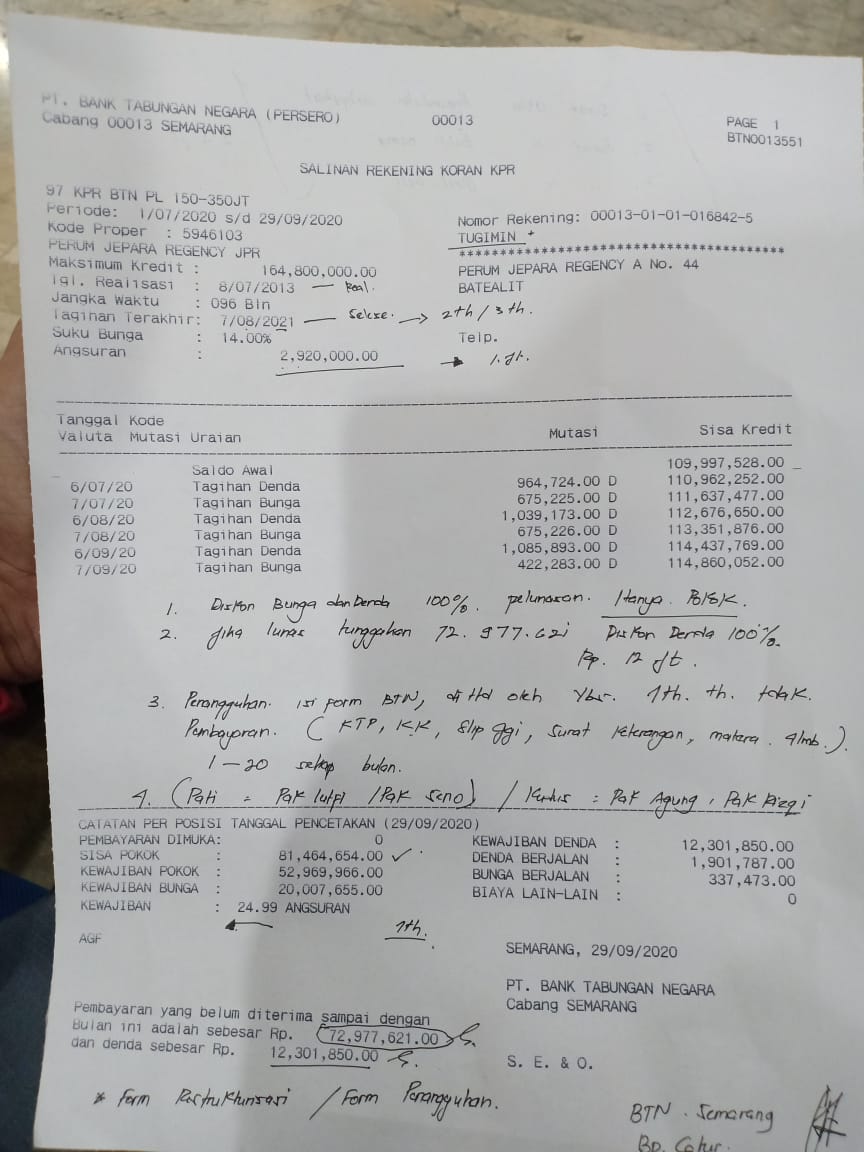 PT. BANK TABUNGAN NEGARA (PERSERO) 00013 PAGE 1
Cabang 00013 SEMARANG BTN0013551
SALINAN REKENING KORAN KPR
97 KPR BTN PL 150-350JT
Periode: 1/07/2020 s/d 29/09/2020 Nomor Rekening: 00013-01-01-016842-5
Kode Proper : 5946103 TUGIMIN
PERUM JEPARA REGENCY JPR ****************************************
Maksimum Kredit : 164,800,000.00 PERUM JEPARA REGENCY A No. 44
Tgl. Realisasi : 8/07/2013 — Real. BATEALIT
Jangka Waktu : 096 Bln
Tagihan Terakhir: 7/08/2021 — → 2th / 3th.
Suku Bunga : 14.00% Telp.
Angsuran : 2,920,000.00 → 1.jt.
Tanggal Kode
Valuta Mutasi Uraian Mutasi Sisa Kredit
Saldo Awal 109,997,528.00
6/07/20 Tagihan Denda 964,724.00 D 110,962,252.00
7/07/20 Tagihan Bunga 675,225.00 D 111,637,477.00
6/08/20 Tagihan Denda 1,039,173.00 D 112,676,650.00
7/08/20 Tagihan Bunga 675,226.00 D 113,351,876.00
6/09/20 Tagihan Denda 1,085,893.00 D 114,437,769.00
7/09/20 Tagihan Bunga 422,283.00 D 114,860,052.00
1. Diskon Bunga dan Denda 100%. pelunasan. Hanya Pokok.
2. Jika lunas tunggakan 72.977.621 Diskon Denda 100%.
Rp. 12 jt.
3. Penangguhan. isi form BTN, di ttd oleh Ybs. 1th. th. tdak.
Pembayaran. ( KTP, KK, Slip Gji, Surat Keterangan, matera. 4lmb.).
1 — 20 setiap bulan.
4. (Pati = Pak lutpi / Pak Seno) / Kudus : Pak Agung, Pak Rizqi
CATATAN PER POSISI TANGGAL PENCETAKAN (29/09/2020)
PEMBAYARAN DIMUKA: 0 KEWAJIBAN DENDA : 12,301,850.00
SISA POKOK : 81,464,654.00 ✓ DENDA BERJALAN : 1,901,787.00
KEWAJIBAN POKOK : 52,969,966.00 BUNGA BERJALAN : 337,473.00
KEWAJIBAN BUNGA : 20,007,655.00 BIAYA LAIN-LAIN : 0
KEWAJIBAN : 24.99 ANGSURAN
← 1th.
AGF SEMARANG, 29/09/2020
PT. BANK TABUNGAN NEGARA
Cabang SEMARANG
Pembayaran yang belum diterima sampai dengan
Bulan ini adalah sebesar Rp. 72,977,621.00
dan denda sebesar Rp. 12,301,850.00
S. E. & O.
* Form Restrukturisasi / Form Penangguhan.
BTN . Semarang
Bp. Catur.